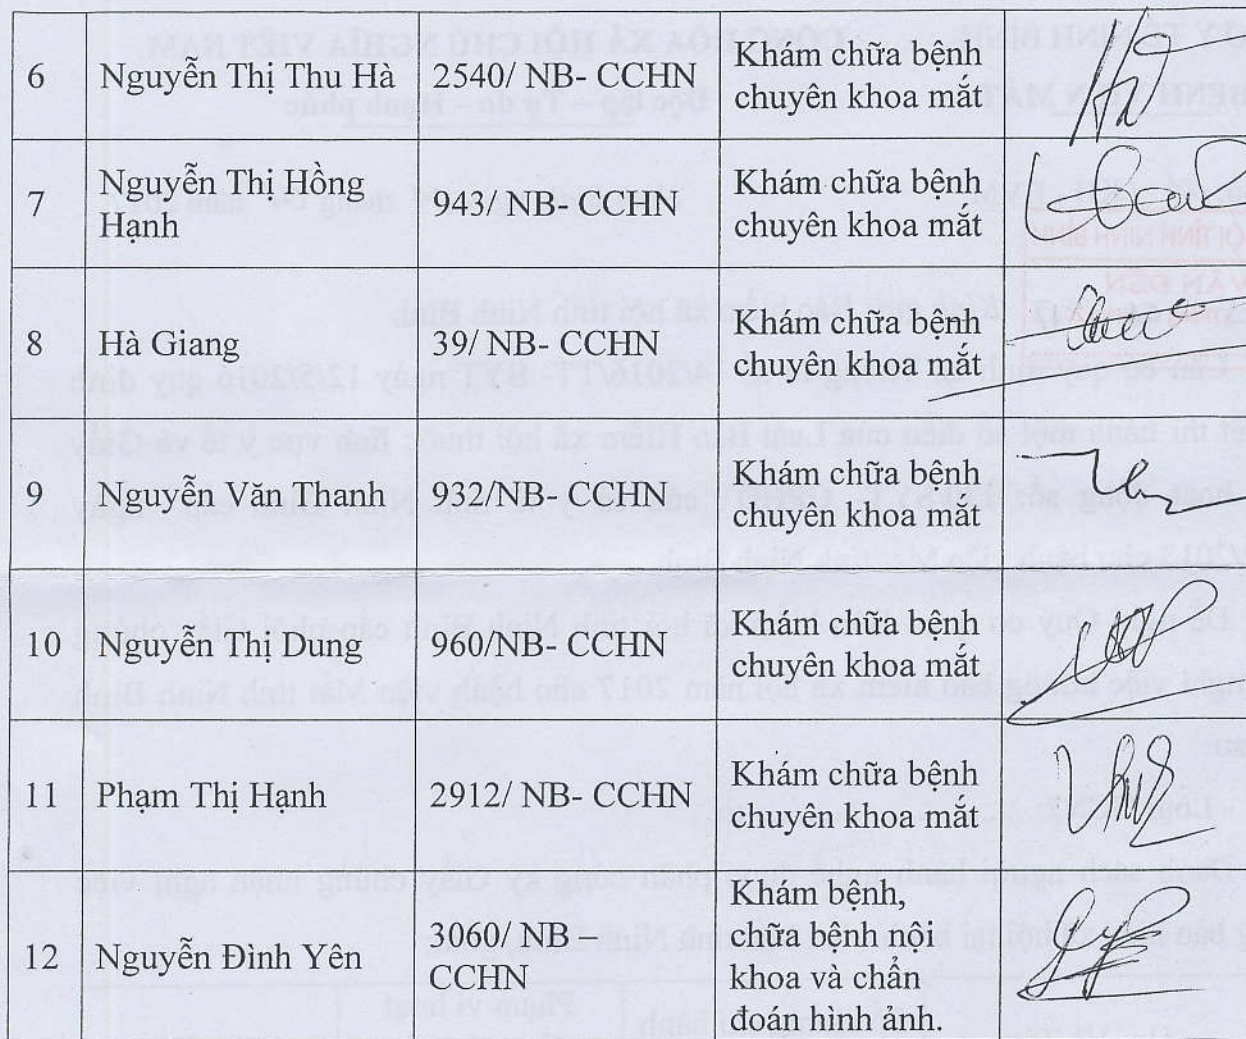 6 Nguyễn Thị Thu Hà 2540/ NB- CCHN Khám chữa bệnh
chuyên khoa mắt
7 Nguyễn Thị Hồng
Hạnh 943/ NB- CCHN Khám chữa bệnh
chuyên khoa mắt
8 Hà Giang 39/ NB- CCHN Khám chữa bệnh
chuyên khoa mắt
9 Nguyễn Văn Thanh 932/NB- CCHN Khám chữa bệnh
chuyên khoa mắt
10 Nguyễn Thị Dung 960/NB- CCHN Khám chữa bệnh
chuyên khoa mắt
11 Phạm Thị Hạnh 2912/ NB- CCHN Khám chữa bệnh
chuyên khoa mắt
12 Nguyễn Đình Yên 3060/ NB-
CCHN Khám bệnh,
chữa bệnh nội
khoa và chẩn
đoán hình ảnh.